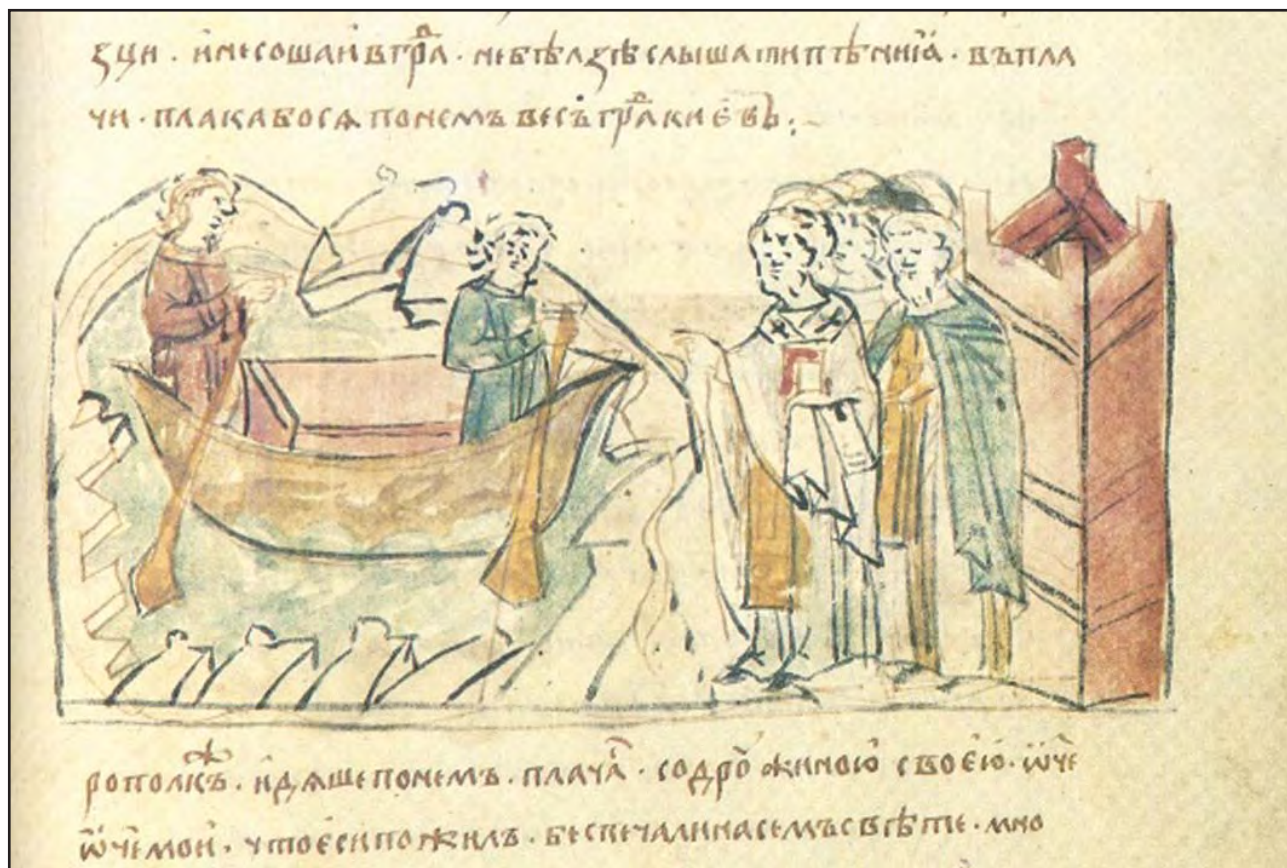 зци · и несоша и в грⷣа · не бѣ лзѣ слышати пѣниꙗ · въ пла
чи · плака бо сѧ по немъ весъ грⷣа києвъ ·
рополкъ · идѧше по немъ · плачѧ · со дрѹжиною своєю · ѿче
ѿче мои · что єси пожилъ · бес печали на семъ свѣте · мно